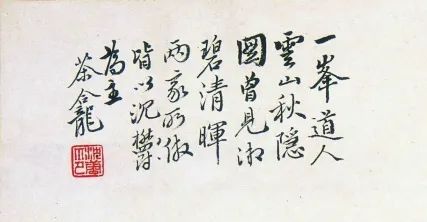 一峯道人
雲山秋隱
圖曾見湘
碧清暉
兩家所倣
皆以沉鬱
為主
茶龕